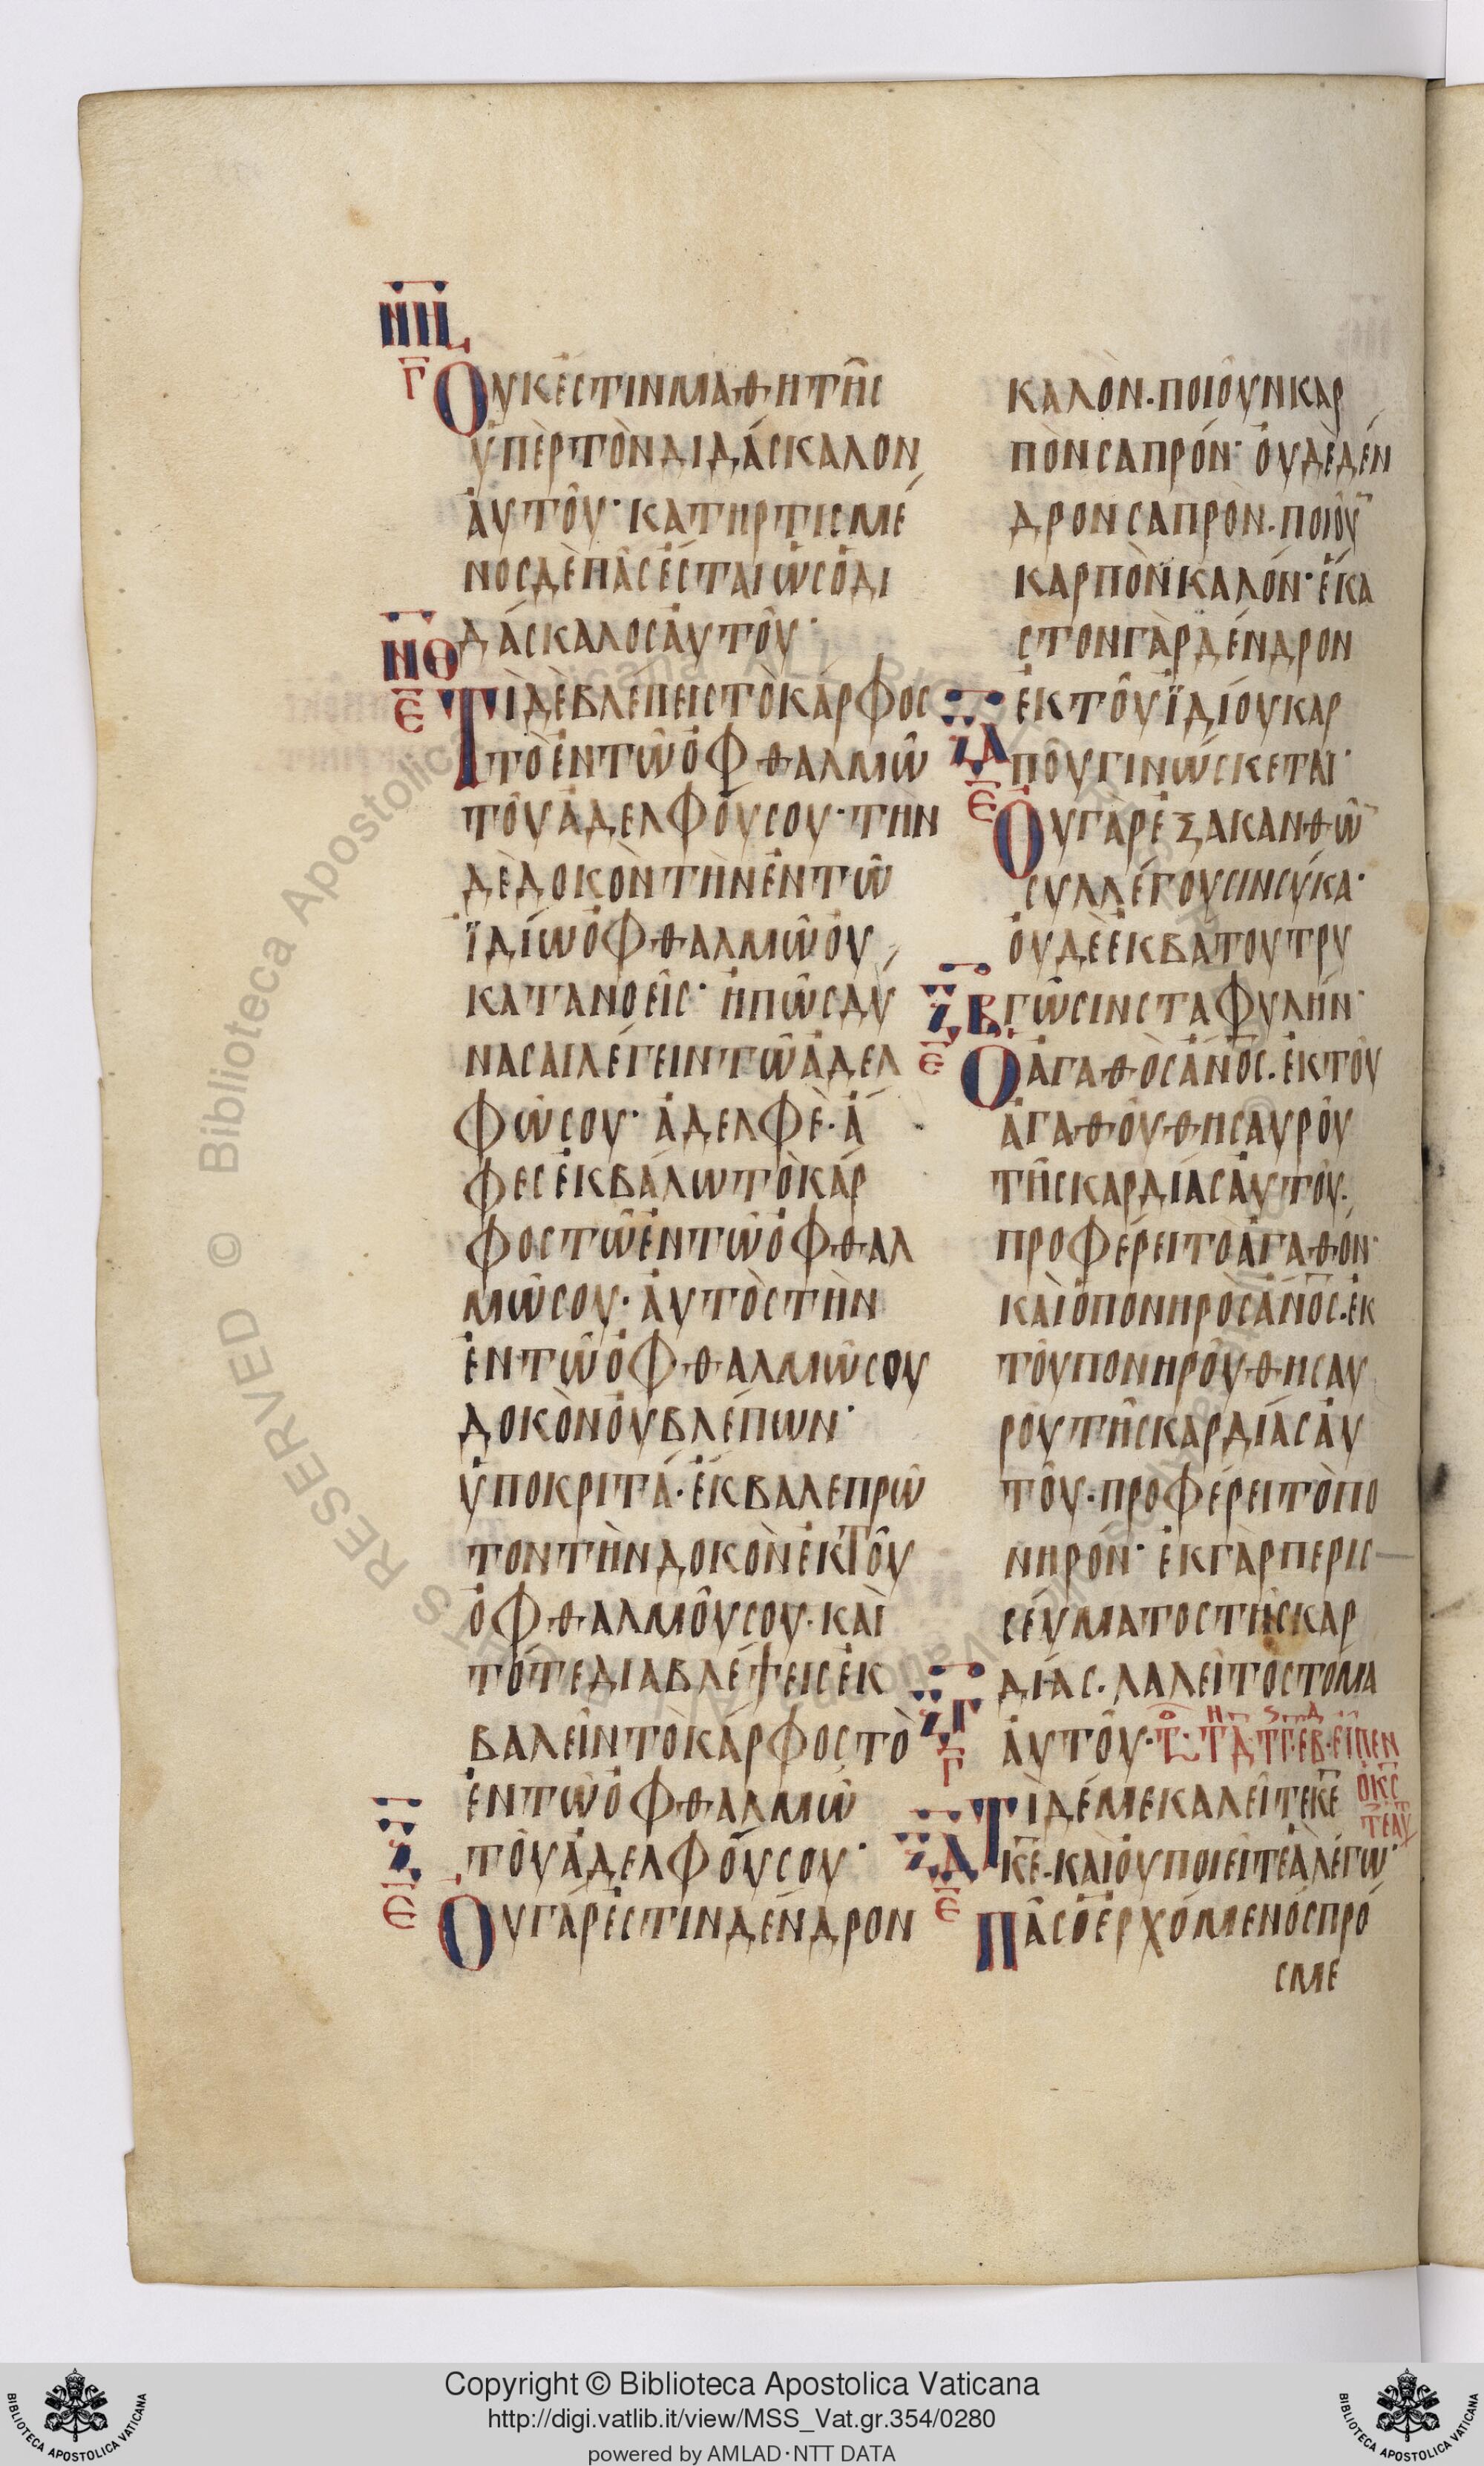 ΝΗ
Γ ΟΥΚἜΣΤΙΝΜΑΘΗΤῊΣ
ὙΠῈΡΤῸΝΔΙΔΆΣΚΑΛΟΝ
ἈΥΤΟῦ· ΚΑΤΗΡΤΙΣΜΈ
ΝΟΣΔῈΠᾶΣἜΣΤΑΙὩΣὉΔΙ
ΔΆΣΚΑΛΟΣἈΥΤΟῦ·
ΝΘ
Ε ΤῚΔῈΒΛΕΠΕΙΣΤῸΚΆΡΦΟΣ
ΤῸἘΝΤῶὈΦΘΑΛΜῶ
ΤΟῦἈΔΕΛΦΟῦΣΟΥ· ΤῊΝ
ΔῈΔΟΚῸΝΤῊΝἘΝΤῶ
ἸΔΊΩὈΦΘΑΛΜῶΟὐ
ΚΑΤΑΝΟΕῖΣ· ἨΠῶΣΔΎ
ΝΑΣΑΙΛΈΓΕΙΝΤῶἈΔΕΛ
ΦῶΣΟΥ· ἈΔΕΛΦῈ· Ἄ
ΦΕΣἘΚΒΆΛΩΤῸΚΆΡ
ΦΟΣΤῶἘΝΤῶὈΦΘΑΛ
ΜῶΣΟΥ· ἈΥΤῸΣΤῊΝ
ἘΝΤῶὈΦΘΑΛΜῶΣΟΥ
ΔΟΚῸΝΟὐΒΛΈΠΩΝ·
ὙΠΟΚΡΙΤΆ· ἜΚΒΑΛΕΠΡῶ
ΤΟΝΤῊΝΔΟΚῸΝἘΚΤΟῦ
ὈΦΘΑΛΜΟῦΣΟΥ· ΚΑῚ
ΤΌΤΕΔΙΑΒΛΈΨΕΙΣἘΚ
ΒΑΛΕῖΝΤῸΚΆΡΦΟΣΤῸ
ἘΝΤῶὈΦΘΑΛΜῶ
ΤΟῦἈΔΕΛΦΟῦΣΟΥ·
Ξ
Ε ΟΥΓΆΡἘΣΤΙΝΔΈΝΔΡΟΝ
ΚΑΛῸΝ· ΠΟΙΟῦΝΚΑΡ
ΠῸΝΣΑΠΡΌΝ· ΟὐΔῈΔΈΝ
ΔΡΟΝΣΑΠΡῸΝ· ΠΟΙΟῦ
ΚΑΡΠῸΝΚΑΛΌΝ· ἝΚΑ
ΣΤΟΝΓᾺΡΔΈΝΔΡΟΝ
ἘΚΤΟῦἸΔΊΟΥΚΑΡ
ΞΑ ΠΟῦΓΙΝΏΣΚΕΤΑΙ·
Ε ΟὐΓᾺΡἘΞΑΚΑΝΘῶ
ΣΥΛΛΈΓΟΥΣΙΝΣΎΚΑ·
ΟὐΔῈἘΚΒΑΤΟΥΤΡΥ
ΞΒ ΓῶΣΙΝΣΤΑΦΥΛΉΝ·
Ε ὉἈΓΑΘῸΣἈΝΟΣ· ἘΚΤΟῦ
ἈΓΑΘΟῦΘΗΣΑΥΡΟῦ
ΤῆΣΚΑΡΔΊΑΣἈΥΤΟῦ·
ΠΡΟΦΈΡΕΙΤΟἈΓΑΘΌΝ·
ΚΑῚὉΠΟΝΗΡῸΣἈΝΟΣ· ἘΚ
ΤΟῦΠΟΝΗΡΟῦΘΗΣΑΥ
ΡΟῦΤῆΣΚΑΡΔΊΑΣἈΥ
ΤΟῦ· ΠΡΟΦΈΡΕΙΤῸΠΟ
ΝΗΡΌΝ· ἘΚΓᾺΡΠΕΡΙΣ
ΣΕΎΜΑΤΟΣΤῆΣΚΑΡ
ΔΊΑΣ· ΛΑΛΕῖΤῸΣΤΌΜΑ
ΞΓ ἈΥΤΟῦ· ΕἶΠΕΝ
ὉΚΣ
Γ ΤῚΔΈΜΕΚΑΛΕῖΤΕΚΕ
ΞΔ ΚΕ· ΚΑῚΟὐΠΟΙΕῖΤΕἋΛΈΓΩ·
Ε ΠᾶΣὉἘΡΧΌΜΕΝΌΣΠΡΌ
ΣΜΕ
© Biblioteca Apostolica Vaticana
Copyright © Biblioteca Apostolica Vaticana
http://digi.vatlib.it/view/MSS_Vat.gr.354/0280
powered by AMLAD·NTT DATA
BIBLIOTECA APOSTOLICA VATICANA
BIBLIOTECA APOSTOLICA VATICANA